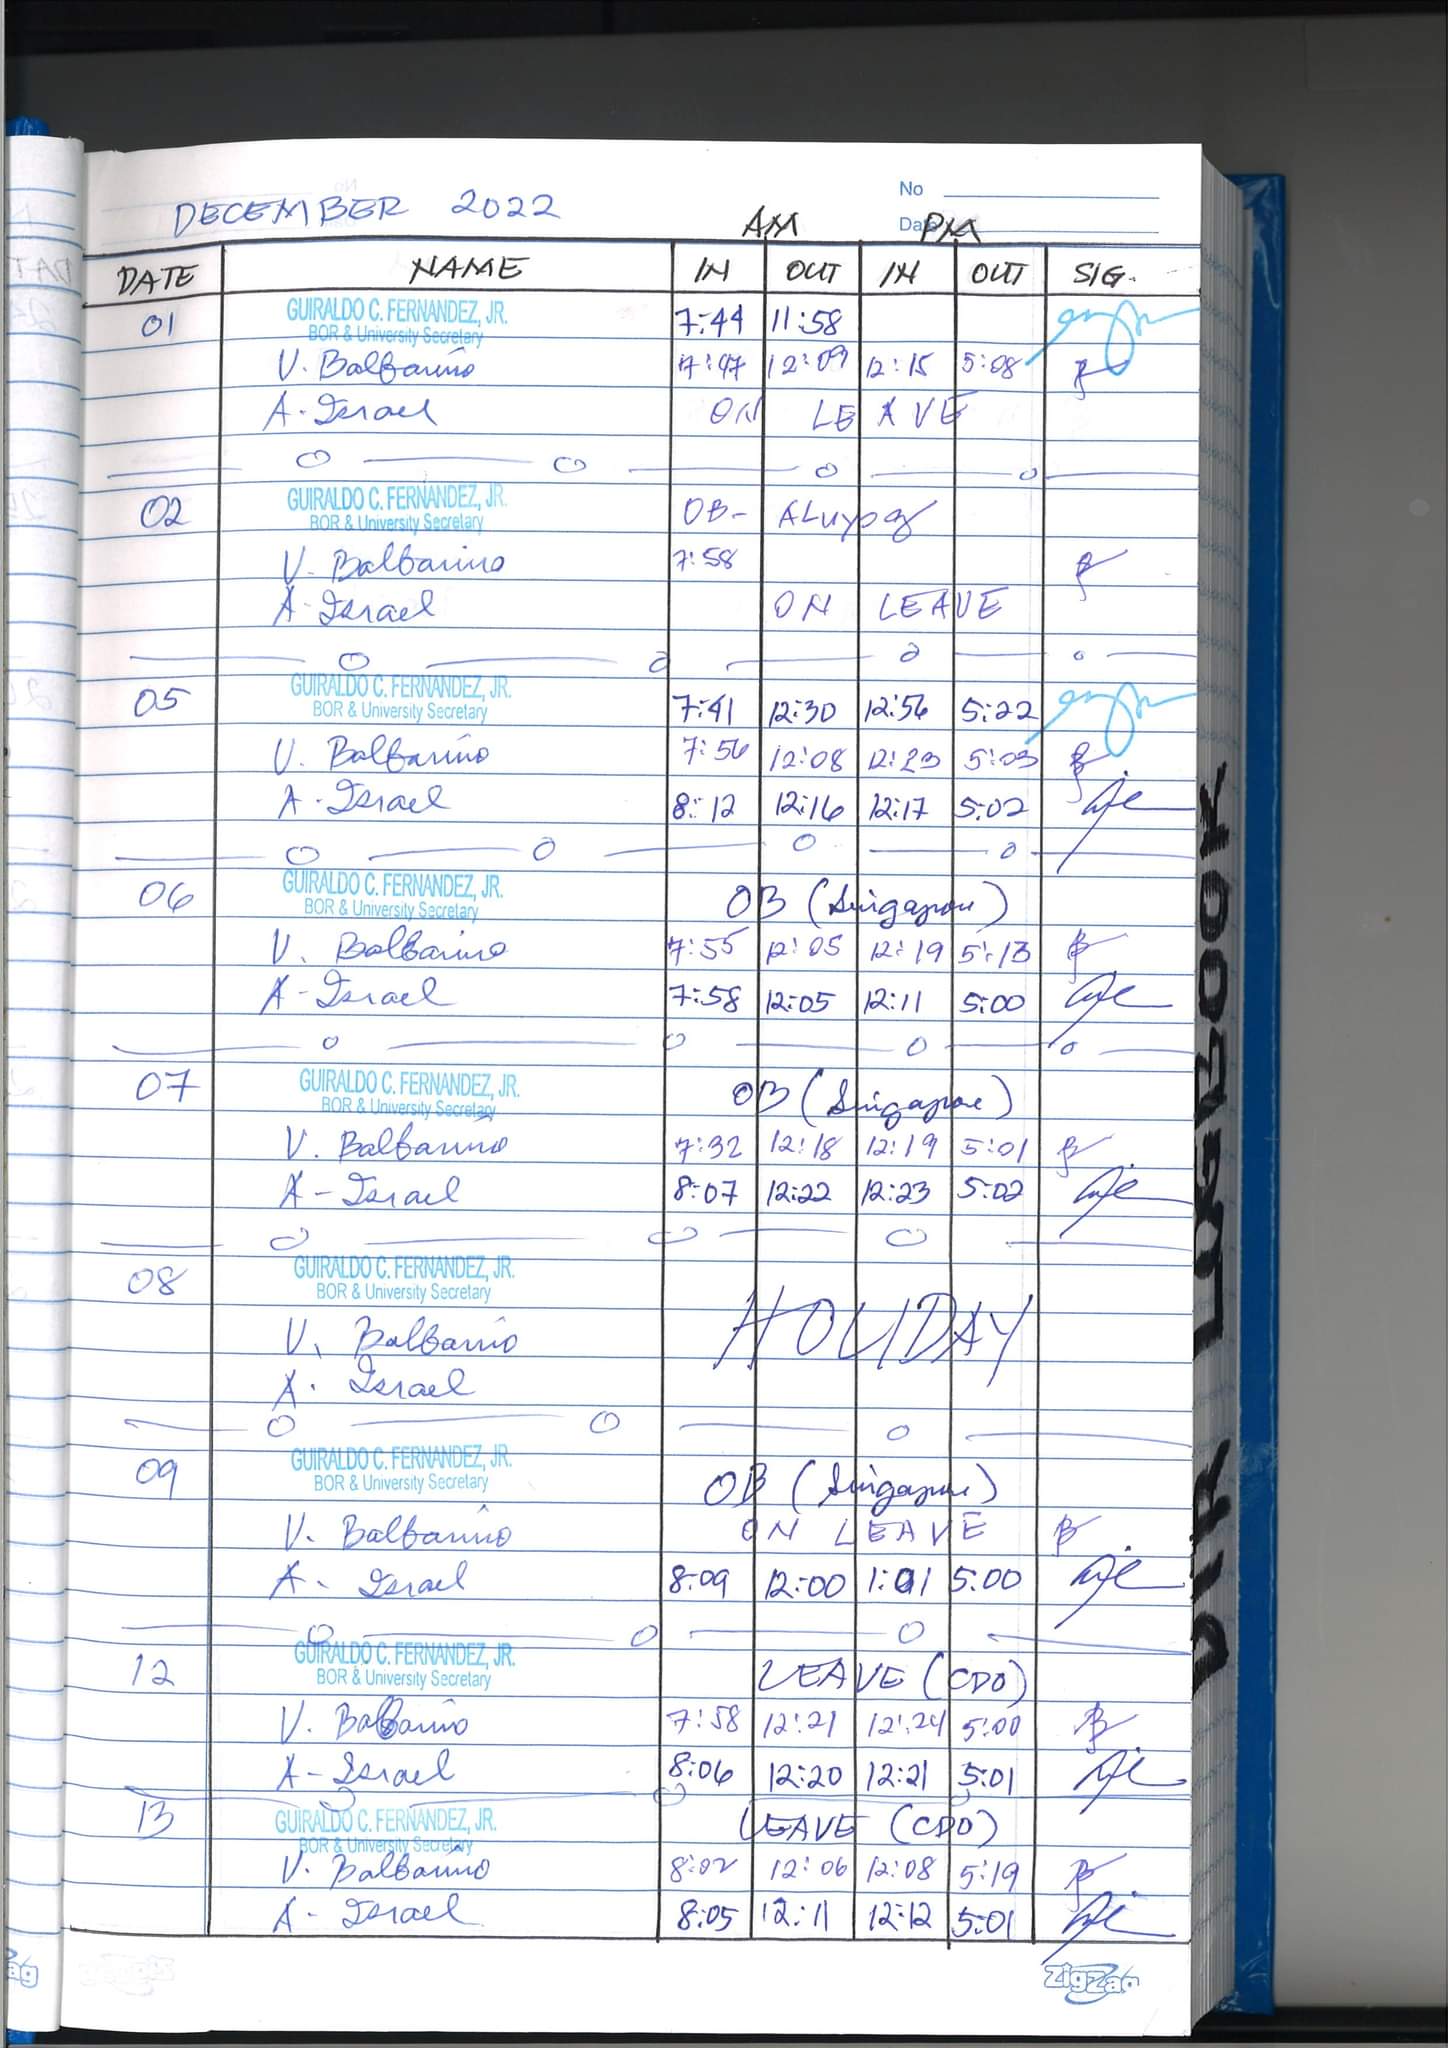 No
DECEMBER 2022 AM PM
Date
DATE NAME IN OUT IN OUT SIG.
01 GUIRALDO C. FERNANDEZ, JR. 7:44 11:58
BOR & University Secretary
V. Balbarino 7:47 12:09 12:15 5:08
A. Israel ON LEAVE
02 GUIRALDO C. FERNANDEZ, JR. OB-
BOR & University Secretary
V. Balbarino 7:58
A. Israel ON LEAVE
05 GUIRALDO C. FERNANDEZ, JR. 7:41 12:30 12:56 5:22
BOR & University Secretary
V. Balbarino 7:56 12:08 12:23 5:03
A. Israel 8:12 12:16 12:17 5:02
06 GUIRALDO C. FERNANDEZ, JR. OB (Singapore)
BOR & University Secretary
V. Balbarino 7:55 12:05 12:19 5:13
A. Israel 7:58 12:05 12:11 5:00
07 GUIRALDO C. FERNANDEZ, JR. OB (Singapore)
BOR & University Secretary
V. Balbarino 7:32 12:18 12:19 5:01
A. Israel 8:07 12:22 12:23 5:02
08 GUIRALDO C. FERNANDEZ, JR.
BOR & University Secretary
V. Balbarino HOLIDAY
A. Israel
09 GUIRALDO C. FERNANDEZ, JR. OB (Singapore)
BOR & University Secretary
V. Balbarino ON LEAVE
A. Israel 8:09 12:00 1:01 5:00
12 GUIRALDO C. FERNANDEZ, JR. LEAVE (CDO)
BOR & University Secretary
V. Balbarino 7:58 12:21 12:24 5:00
A. Israel 8:06 12:20 12:21 5:01
13 GUIRALDO C. FERNANDEZ, JR. LEAVE (CDO)
BOR & University Secretary
V. Balbarino 8:02 12:06 12:08 5:19
A. Israel 8:05 12:11 12:12 5:01
ZigZag
DTR LOGBOOK